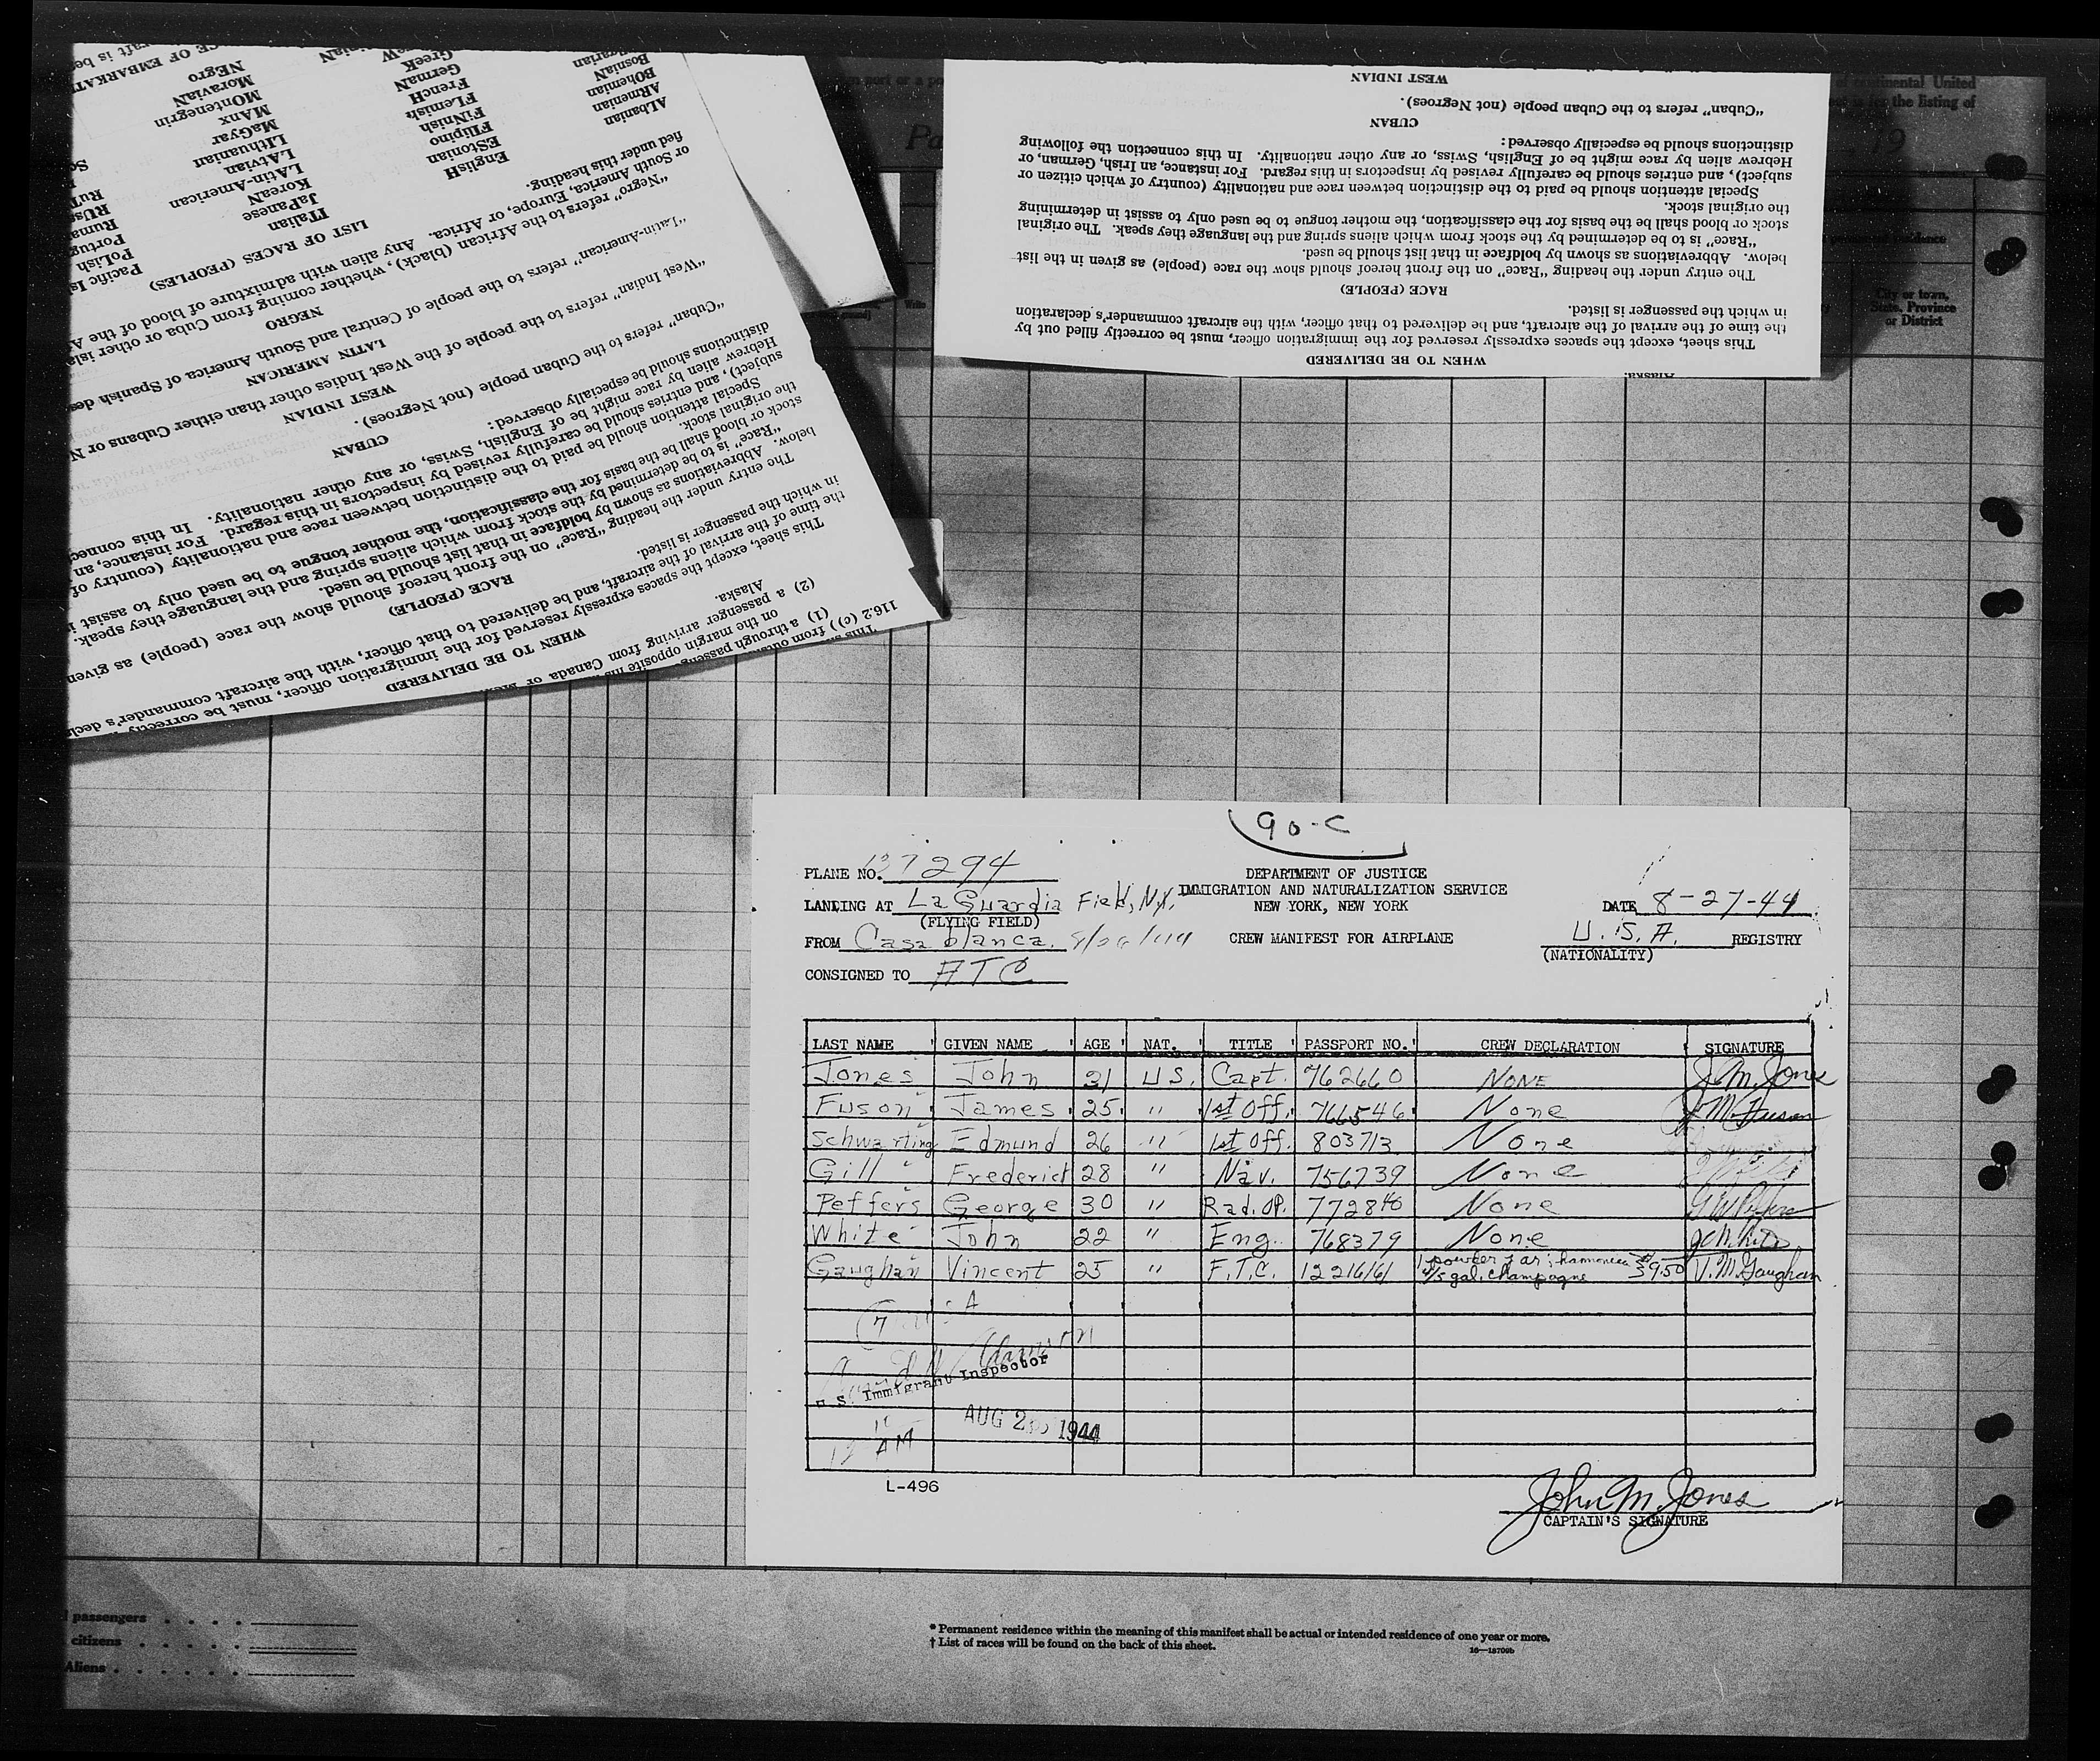 90-C
PLANE NO. 37294
DEPARTMENT OF JUSTICE
IMMIGRATION AND NATURALIZATION SERVICE
NEW YORK, NEW YORK
LANDING AT La Guardia Field, N.Y.
(FLYING FIELD)
DATE 8-27-44
FROM Casablanca. 8/26/44
CREW MANIFEST FOR AIRPLANE
U.S.A. REGISTRY
(NATIONALITY)
CONSIGNED TO ATC
LAST NAME GIVEN NAME AGE NAT. TITLE PASSPORT NO. CREW DECLARATION SIGNATURE
Jones John 31 U.S. Capt. 762660 NONE J.M. Jones
Fuson James 25 " 1st Off. 766546 None J.M. Fuson
Schwarting Edmund 26 " 1st Off. 803713 None
Gill Frederick 28 " Nav. 756739 None
Peffers George 30 " Rad. OP. 772840 None
White John 22 " Eng. 768379 None J C White
Gaughan Vincent 25 " F.T.C. 1221661 1 powder jar; harmonica $9.50 V.M. Gaughan
4/5 gal. champagne
(7
U.S. Immigrant Inspector
AUG 1944
AM
L-496
John M. Jones
CAPTAIN'S SIGNATURE
WHEN TO BE DELIVERED
This sheet, except the spaces expressly reserved for the immigration officer, must be correctly filled out by
the time of the arrival of the aircraft, and be delivered to that officer, with the aircraft commander's declaration
in which the passenger is listed.
RACE (PEOPLE)
The entry under the heading "Race" on the front hereof should show the race (people) as given in the list
below. Abbreviations as shown by boldface in that list should be used.
"Race" is to be determined by the stock from which aliens spring and the language they speak. The original
stock or blood shall be the basis for the classification, the mother tongue to be used only to assist in determining
the original stock.
Special attention should be paid to the distinction between race and nationality (country of which citizen or
subject), and entries should be carefully revised by inspectors in this regard. For instance, an Irish, German, or
Hebrew alien by race might be of English, Swiss, or any other nationality. In this connection the following
distinctions should be especially observed:
CUBAN
"Cuban" refers to the Cuban people (not Negroes).
WEST INDIAN
116.2 (c))
(1) a through passenger
on the margin opposite his
(2) a passenger arriving from Canada or
Alaska.
WHEN TO BE DELIVERED
This sheet, except the spaces expressly reserved for the immigration officer, must be correctly
the time of the arrival of the aircraft, and be delivered to that officer, with the aircraft commander's
in which the passenger is listed.
RACE (PEOPLE)
The entry under the heading "Race" on the front hereof should show the race (people) as given
below. Abbreviations as shown by boldface in that list should be used.
"Race" is to be determined by the stock from which aliens spring and the language they speak.
stock or blood shall be the basis for the classification, the mother tongue to be used only to assist
the original stock.
Special attention should be paid to the distinction between race and nationality (country of
subject), and entries should be carefully revised by inspectors in this regard. For instance, an
Hebrew alien by race might be of English, Swiss, or any other nationality. In this
distinctions should be especially observed:
CUBAN
"Cuban" refers to the Cuban people (not Negroes).
WEST INDIAN
"West Indian" refers to the people of the West Indies other than either Cubans or
LATIN AMERICAN
"Latin-American" refers to the people of Central and South America of Spanish
NEGRO
"Negro" refers to the African (black), whether coming from Cuba or other
or South America, Europe, or Africa. Any alien with admixture of blood of the
fied under this heading.
LIST OF RACES (PEOPLES)
ALbanian
ARmenian
BOhemian
BosniaN
EnglisH
EStonian
FIlipino
FiNnish
FLemish
FrencH
GermaN
GreeK
ITalian
JaPanese
KoreaN
LAtin-American
LAtvian
LIthuanian
MaGyar
MAnx
MOntenegrin
MoraviaN
NEgro
Pacific
PoLish
City or town,
State, Province
or District
passengers
citizens
Aliens
* Permanent residence within the meaning of this manifest shall be actual or intended residence of one year or more.
† List of races will be found on the back of this sheet.
16—18709b